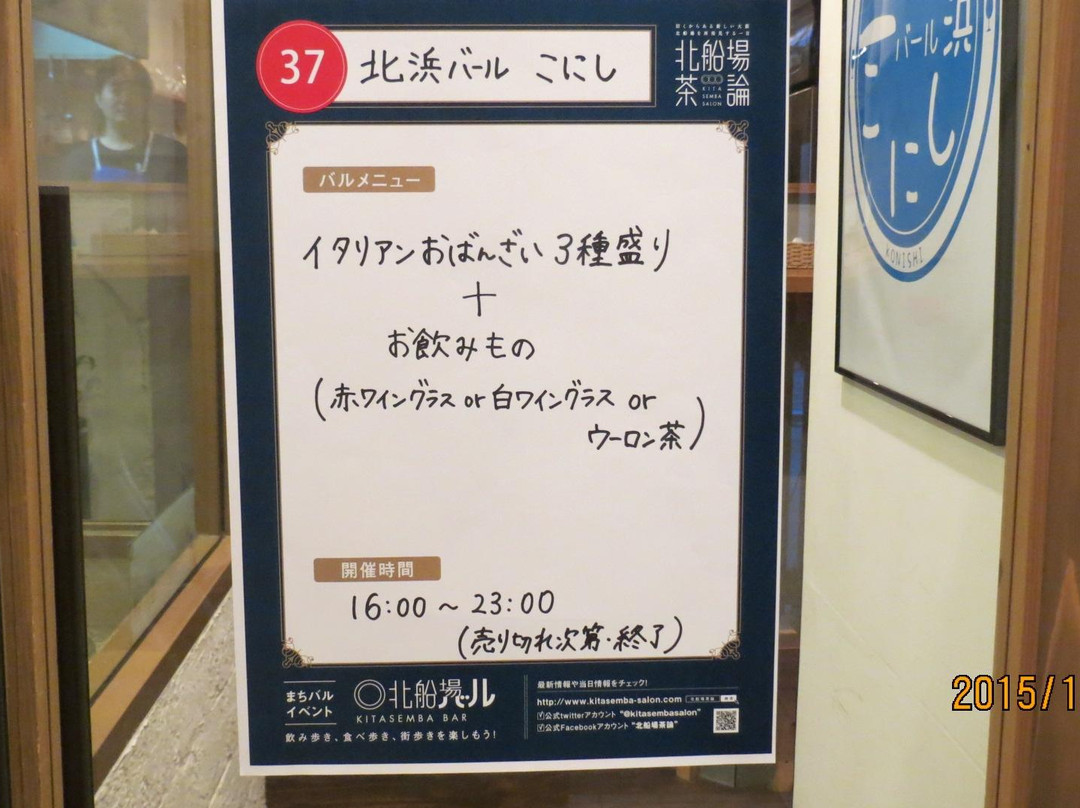 37
北浜バール こにし
北船場
茶論
KITA
SEMBA
SALON
バルメニュー
イタリアンおばんざい 3種盛り
+
お飲みもの
(赤ワイングラス or 白ワイングラス or
ウーロン茶)
開催時間
16:00 ~ 23:00
(売り切れ次第・終了)
まちバル
イベント
北船場バール
KITASEMBA BAR
飲み歩き、食べ歩き、街歩きを楽しもう!
最新情報や当日情報をチェック!
http://www.kitasemba-salon.com
公式twitterアカウント "@kitasembasalon"
公式Facebookアカウント "北船場茶論"
浜
バール
こにし
KONISHI
2015/1